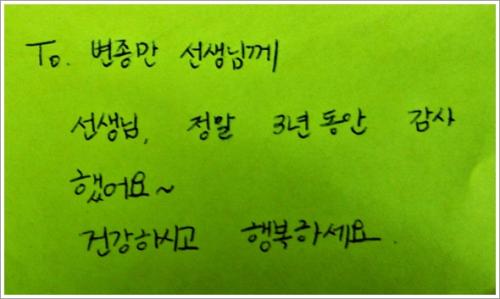 To. 변종만 선생님께
선생님, 정말 3년 동안 감사
했어요~
건강하시고 행복하세요.